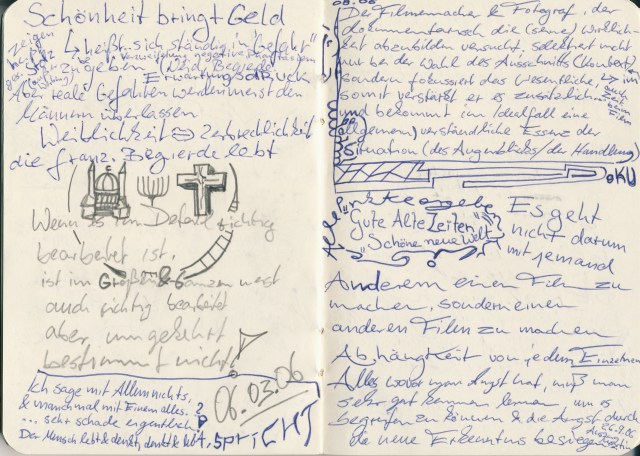 Schönheit bringt Geld
zeigen
↳ heißt "sich ständig in Gefahr"
zu geben (Neid, Begierde,
Erwartungsdruck
Aber reale Gefahren werden meist den
Männern überlassen
Weiblichkeit ⇔ Zerbrechlichkeit
die franz. Begierde lebt
Wenn es im Detail richtig
bearbeitet ist,
ist im Großen & Ganzen meist
auch richtig bearbeitet
aber umgekehrt
bestimmt nicht!
06.03.06
Ich sage mit Allem nichts,
& manchmal mit Einem alles.
... sehr schade eigentlich
Der Mensch lebt & denkt, denkt & lebt, SPRICHT
Der Filmemacher & Fotograf, der
dokumentarisch die (seine) Wirklich-
keit abzubilden versucht, selektiert nicht
nur bei der Wahl des Ausschnitts
sondern fokussiert das Wesentliche,
somit verstärkt er es zusätzlich
und bekommt im Idealfall eine
(allgemein) verständliche Essenz der
Situation (des Augenblicks/der Handlung)
"Gute Alte Zeiten"
"Schöne neue Welt"
Es geht
nicht darum
mit jemand
Anderem einen Film zu
machen, sondern einen
anderen Film zu machen
Abhängigkeit von jedem Einzelnen
Alles wovor man Angst hat, muß man
sehr gut kennen lernen um es
begreifen zu können & die Angst durch
die neue Erkenntnis besiegen